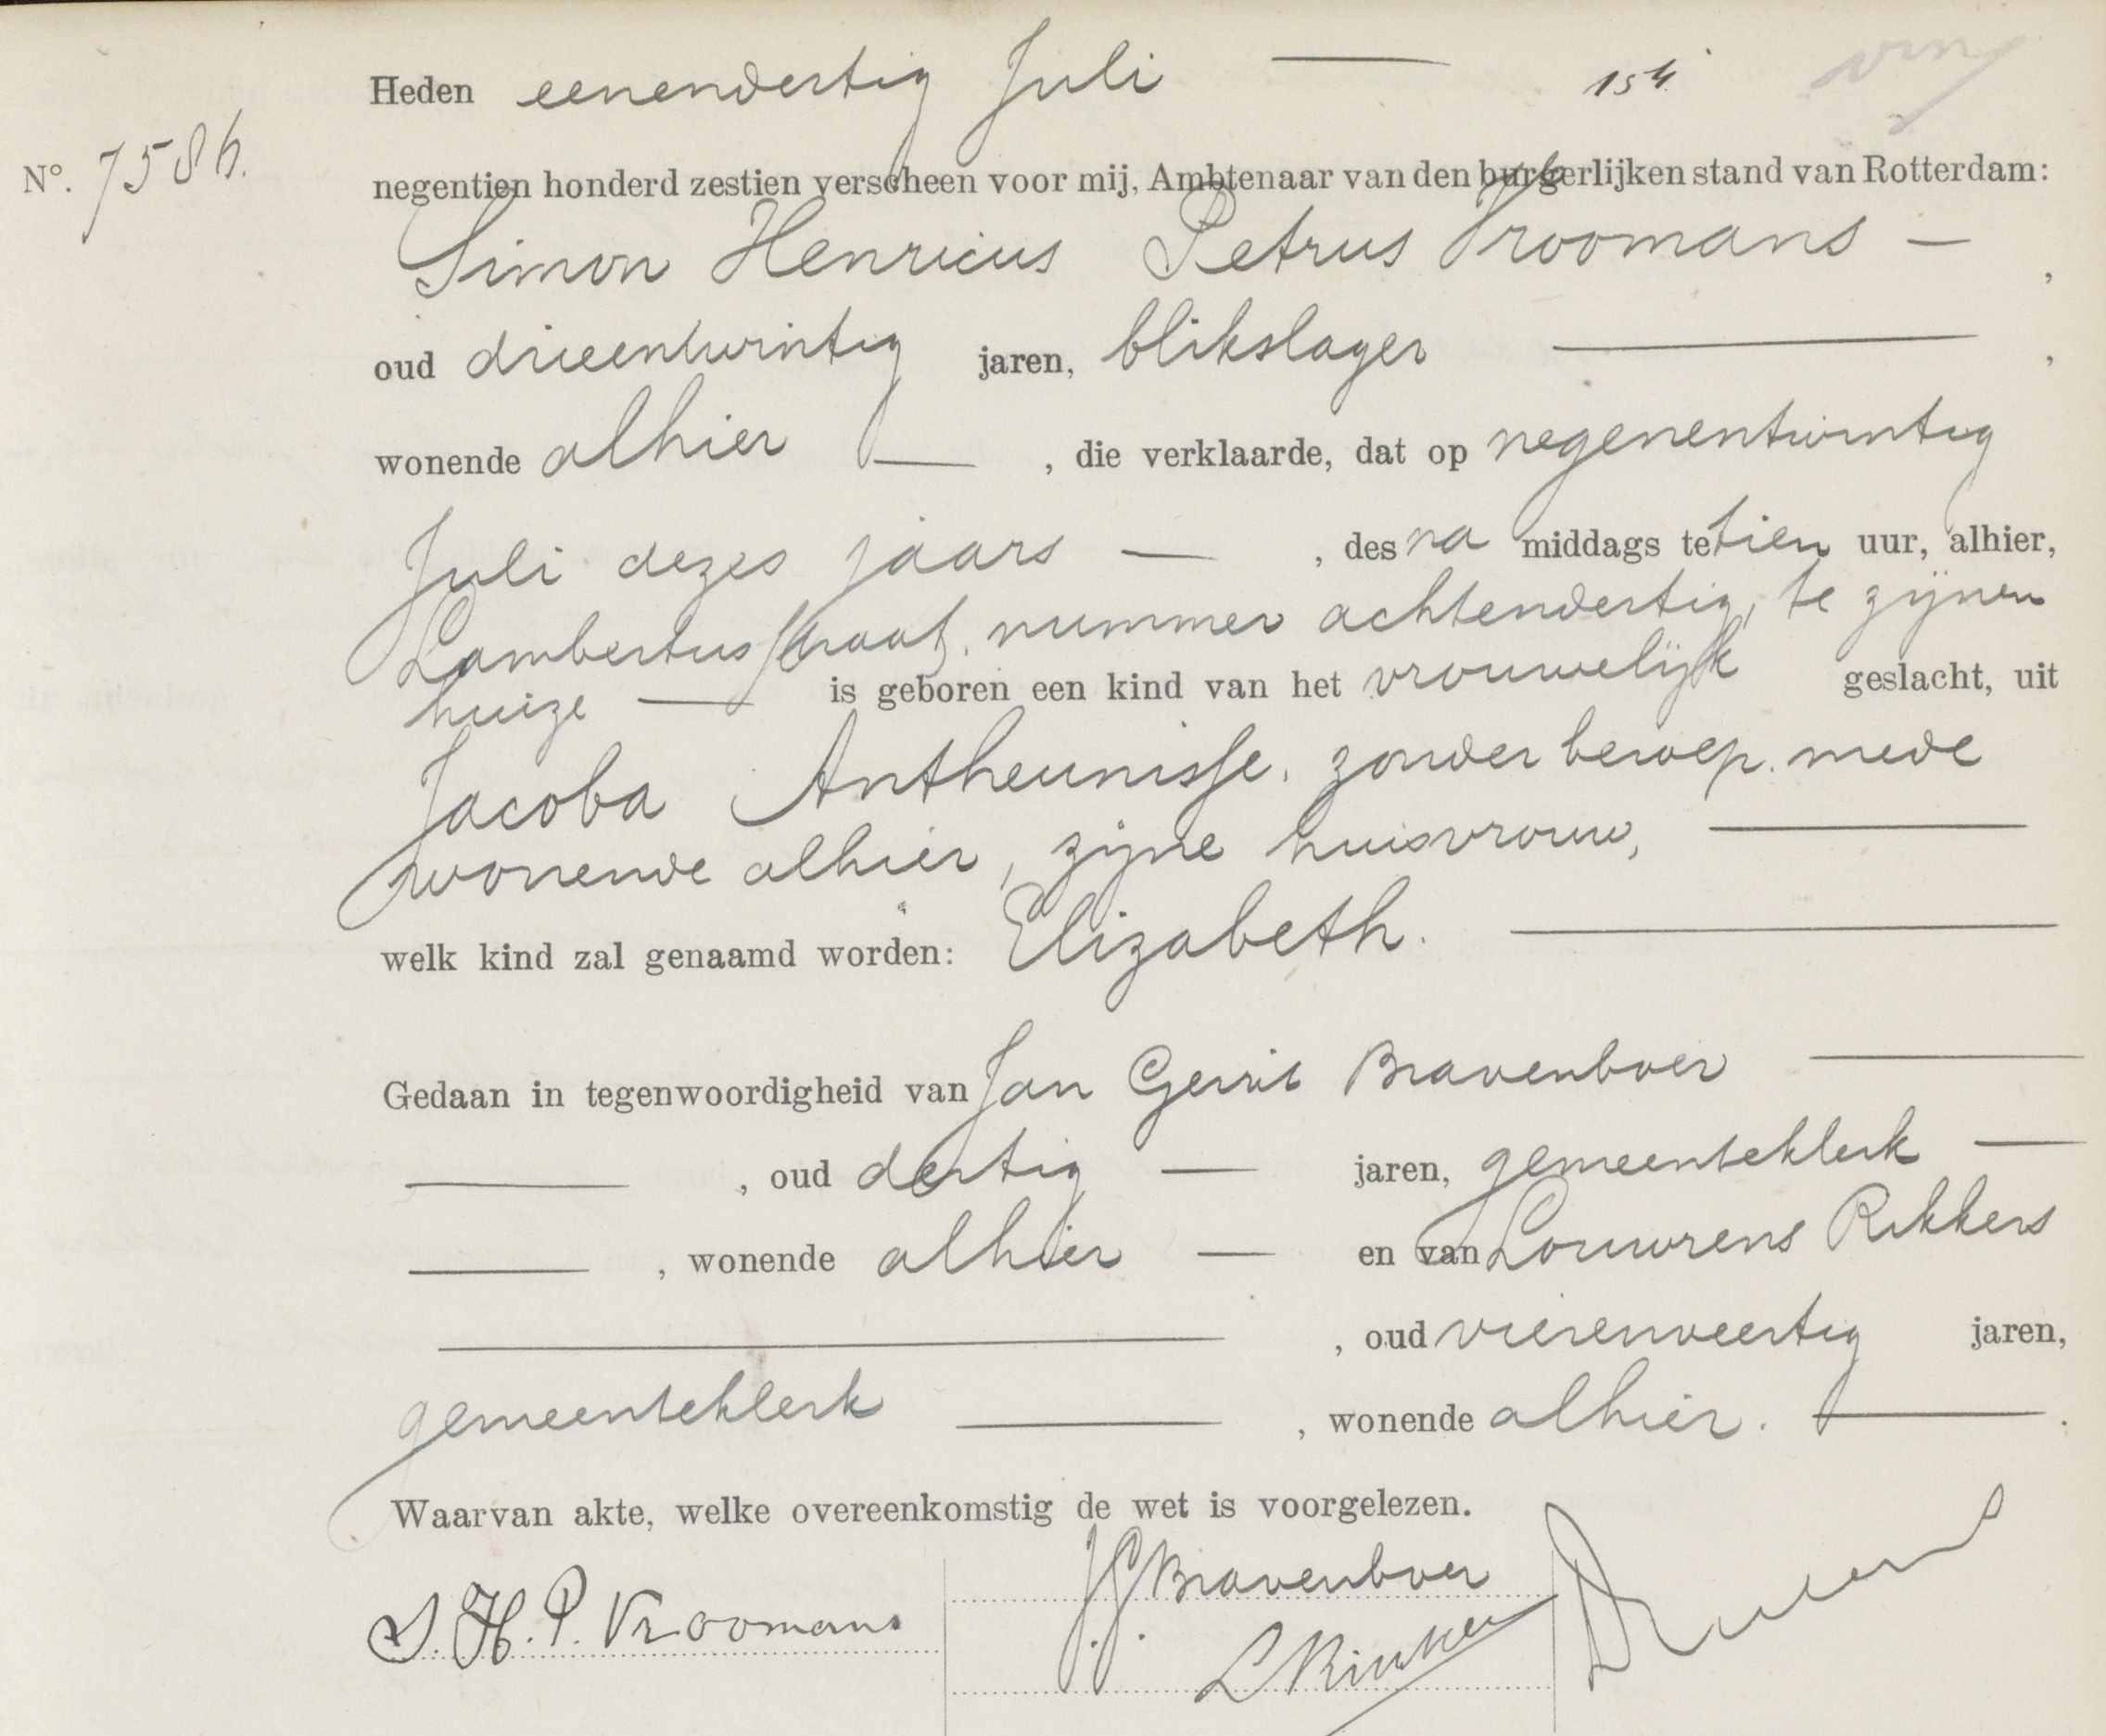 Heden eenendertig Juli — 154
No. 7586.
negentien honderd zestien verscheen voor mij, Ambtenaar van den burgerlijken stand van Rotterdam:
Simon Henricus Petrus Vroomans — ,
oud drieentwintig jaren, blikslager — ,
wonende alhier — , die verklaarde, dat op negenentwintig
Juli dezes jaars — , des na middags te tien uur, alhier,
Lambertusstraat, nummer achtendertig, te zijnen
huize — is geboren een kind van het vrouwelijk geslacht, uit
Jacoba Antheunisse, zonder beroep, mede
wonende alhier, zijne huisvrouw, —
welk kind zal genaamd worden: Elizabeth. —
Gedaan in tegenwoordigheid van Jan Gerrit Bravenboer —
— , oud dertig — jaren, gemeenteklerk —
— , wonende alhier — en van Louwrens Rikkers
— , oud vierenveertig jaren,
gemeenteklerk — , wonende alhier. — .
Waarvan akte, welke overeenkomstig de wet is voorgelezen.
J.G. Bravenboer
S. H. P. Vroomans